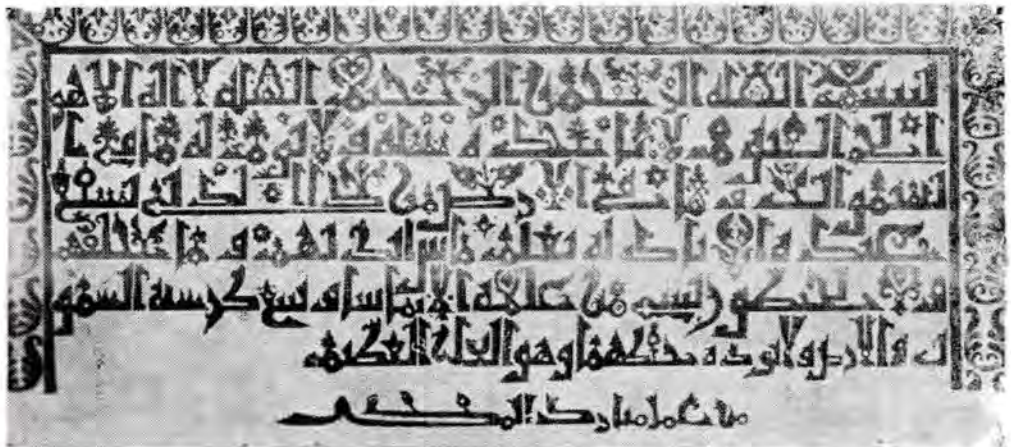 بسم الله الرحمن الرحيم الله لا اله الا هو
الحي القيوم لا تاخذه سنة ولا نوم له ما في ا
لسموت وما في الارض من ذا الذي يشفع
عنده الا باذنه يعلم ما بين ايديهم وما خلفهم
ولا يحيطون بشي من علمه الا بما شا وسع كرسيه السمو
ت والارض ولا يوده حفظهما وهو العلي العظيم
من عمل مبارك المكي